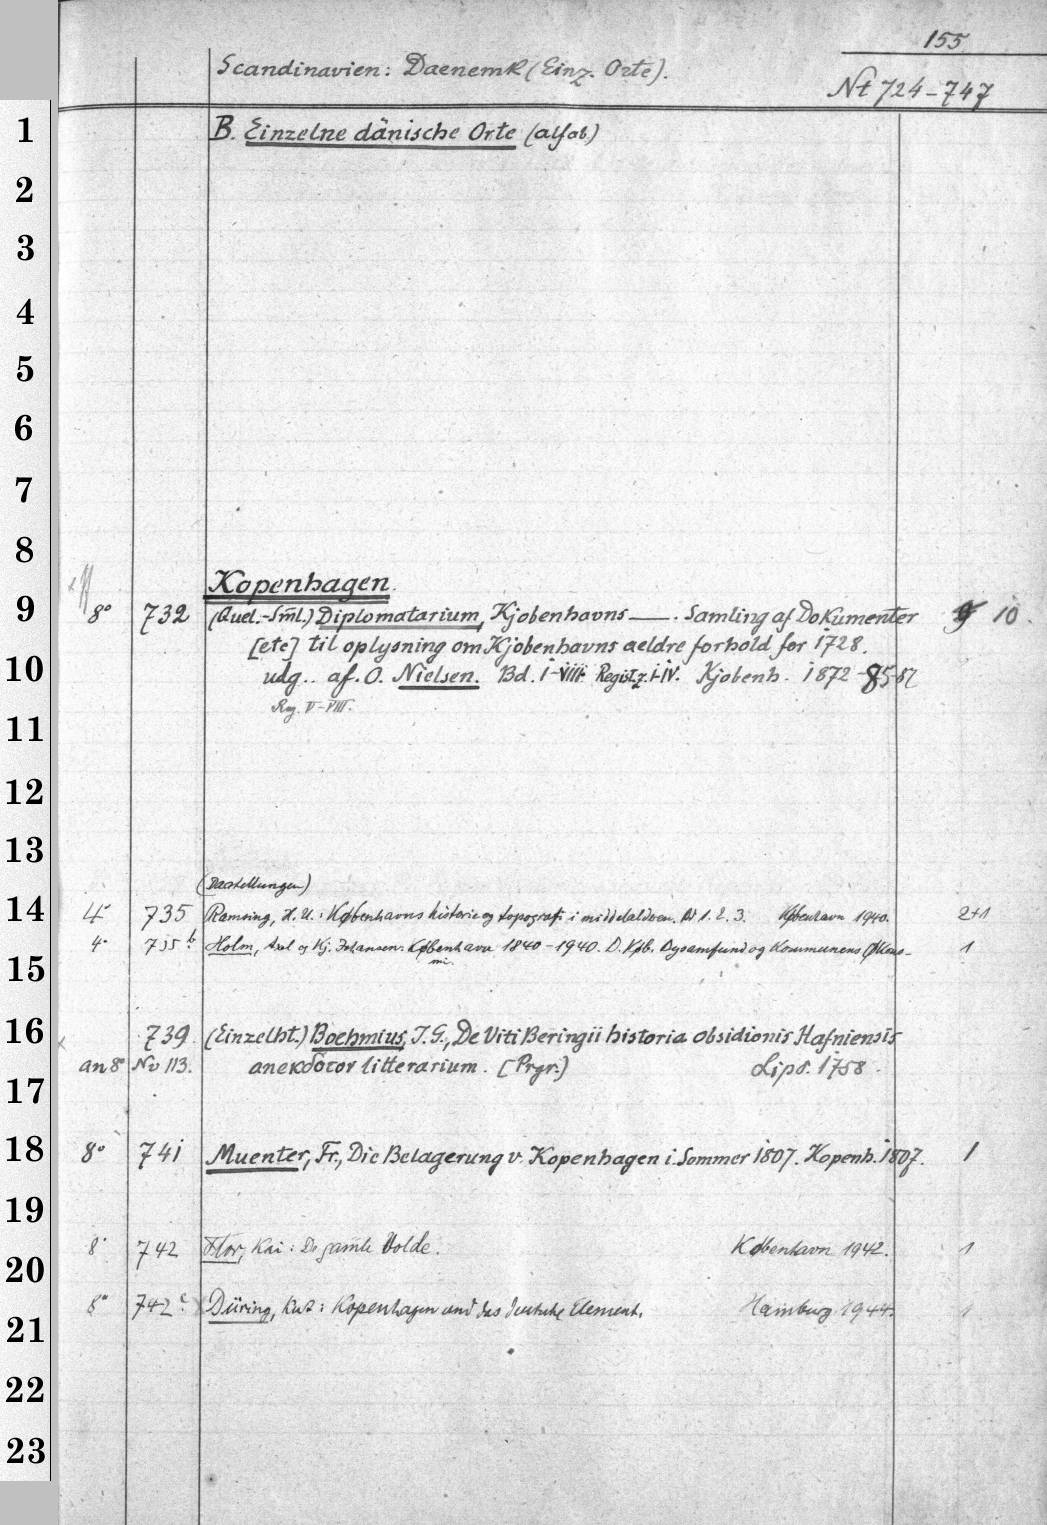 155
Scandinavien: Daenemk (Einz. Orte).
Nt 724-747
1
B. Einzelne dänische Orte (alfab)
2
3
4
5
6
7
8
Kopenhagen.
9 8° 732 (Quel.-Sml.) Diplomatarium, Kjobenhavns —. Samling af Dokumenter 9 10.
[etc] til oplysning om Kjobenhavns aeldre forhold for 1728.
10 udg.. af. O. Nielsen. Bd. I-VIII Registr. I-IV. Kjobenh. 1872-85-87
Reg. V-VIII.
11
12
13
(Darstellungen)
14 4° 735 Ramsing, H. U.: Københavns historie og topografi i middelalderen. Bd 1. 2. 3. København 1940. 2+1
4° 735 b Holm, Axel og Kj. Johansen: København 1840-1940. D. Køb. Bysamfund og Kommunens Økono-
mi. 1
15
16 739 (Einzelht.) Boehmius, J. G., De Viti Beringii historia obsidionis Hafniensis
an 8° Nv 113. anekdotor litterarium. [Prgr.) Lips. 1758.
17
18 8° 741 Muenter, Fr., Die Belagerung v. Kopenhagen i. Sommer 1807. Kopenh. 1807. 1
19
8° 742 Flor, Kai: De gamle Volde. København 1942. 1
20
8° 742 c Düring, Kurt: Kopenhagen und das deutsche Element. Hamburg 1944. 1
21
22
23